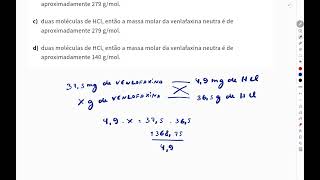 aproximadamente 279 g/mol.
c) duas moléculas de HCl, então a massa molar da venlafaxina neutra é de
aproximadamente 279 g/mol.
d) duas moléculas de HCl, então a massa molar da venlafaxina neutra é de
aproximadamente 140 g/mol.
37,5 mg de VENLAFAXINA 4,9 mg de HCl
X g de VENLAFAXINA 36,5 g de HCl
4,9 . x = 37,5 . 36,5
1368,75
4,9